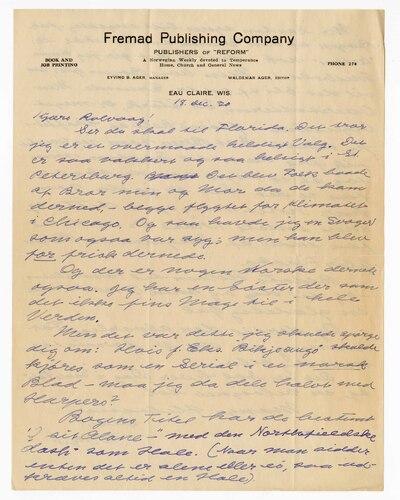 Fremad Publishing Company
PUBLISHERS OF "REFORM"
BOOK AND
JOB PRINTING
A Norwegian Weekly devoted to Temperance
Home, Church and General News
PHONE 274
EYVING B. AGER, MANAGER
WALDEMAR AGER, EDITOR
EAU CLAIRE, WIS.
18 dec. 30
Kjære Rølvaag!
Ser du skal til Florida. Det tror
jeg er et overmaade heldigt Valg. Det
er saa vakkert og saa helsigt i St.
Petersburg. Det blev Folk baade
af Bror min og Mor da de kom
derned, – begge flygtet for klimatet
i Chicago. Og saa havde jeg en Svoger
som ogsaa var syg; men han blev
for frisk dernede.
Og der er nogen Norske dernede
ogsaa. Jeg har en Søster der som
det ikke fins Mage til i hele
Verden.
Men det var dette jeg skulde spørge
dig om: Hvis f. Eks. skulde
kjøres som en Serial i en norsk
Blad – maa jeg da dele halvt med
Harpers?
Bogens Titel har de bestemt
"I sit Alone –" med den
dash som Hale. (Naar man sidder
enten det er alene eller ei, saa ud-
kræves altid en Hale)